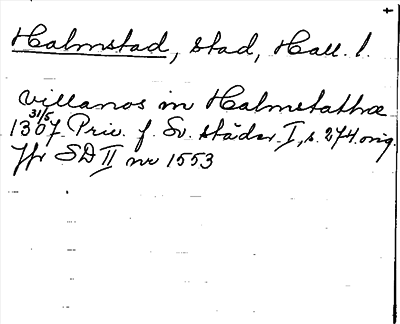 Halmstad, stad, Hall. l.
villanos in Halmstathæ
31/5
1307 Priv. f. Sv. städer. I, s. 274 orig.
Jfr SD II nr 1553